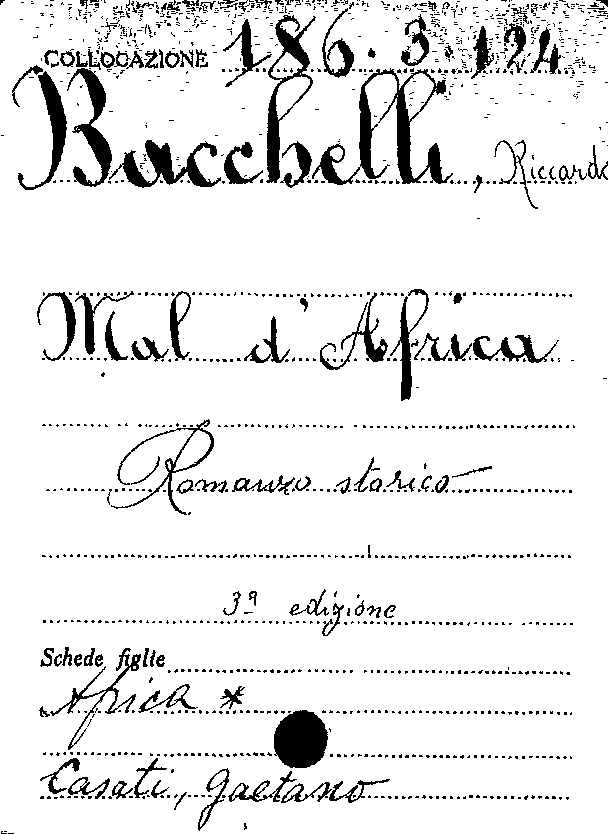 COLLOCAZIONE 186.3.124
Bacchelli, Riccardo
Mal d'Africa
Romanzo storico
3ª edizione
Schede figlie
Africa *
Casati, Gaetano